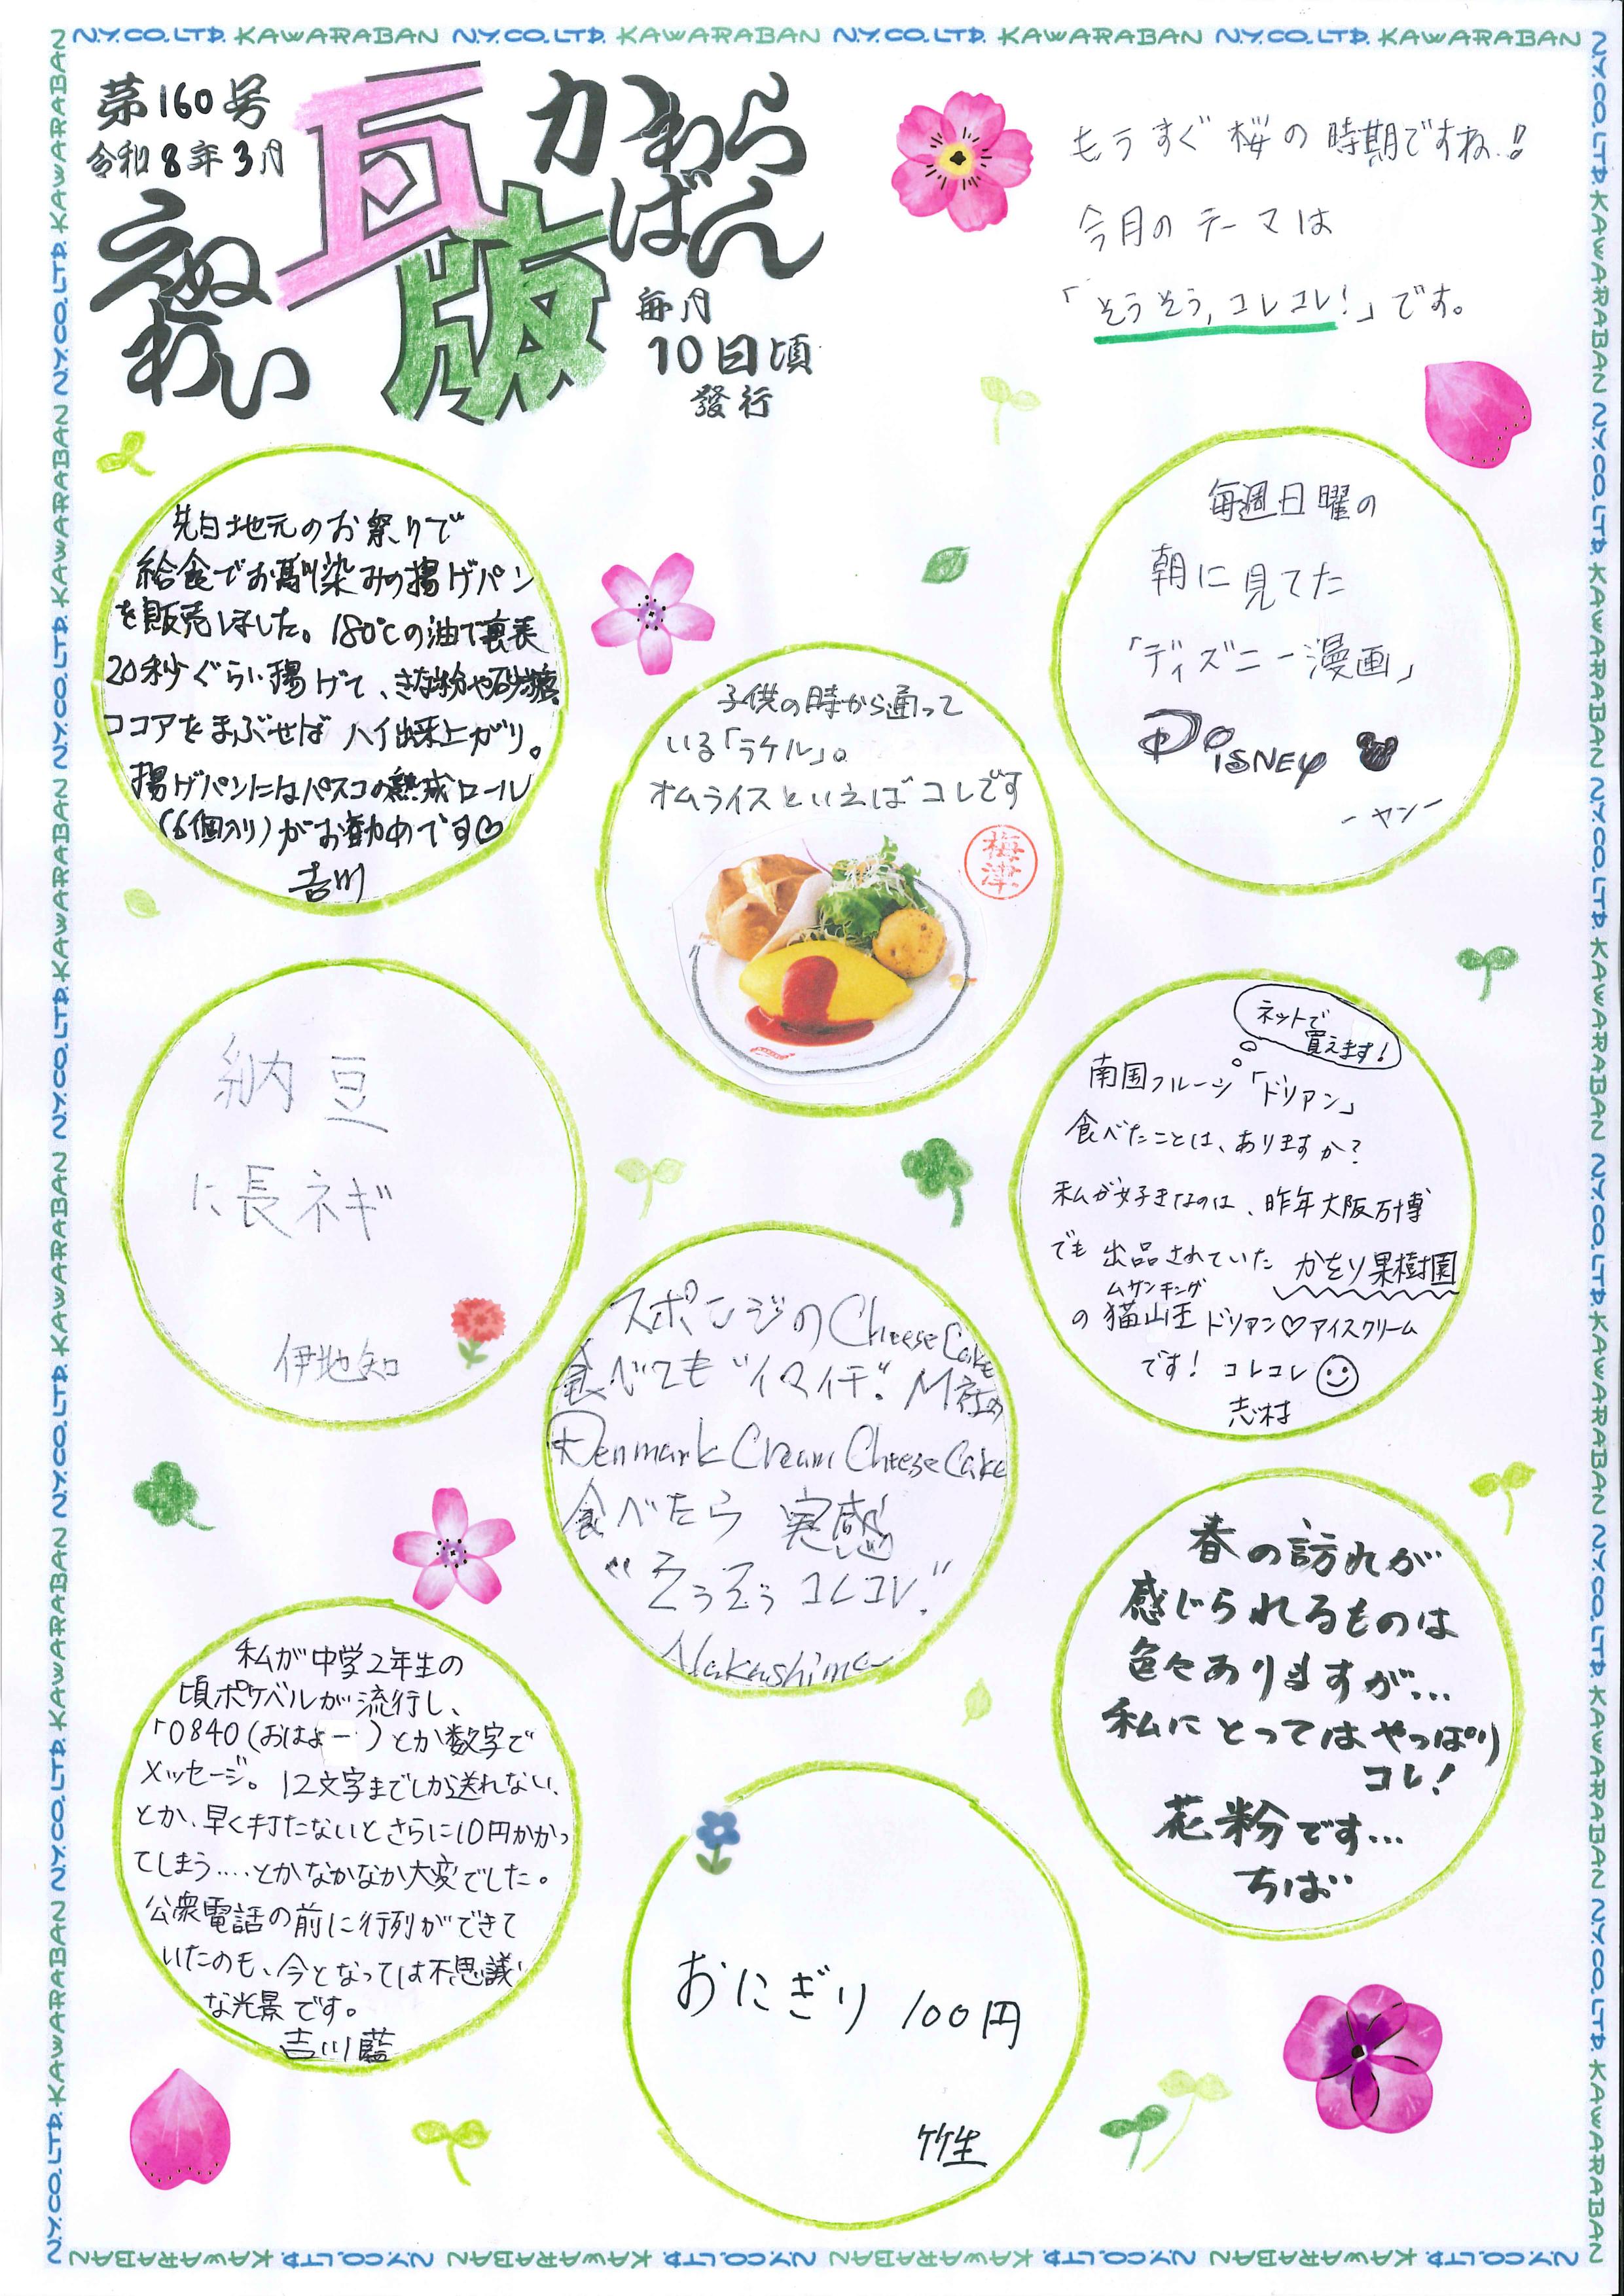 N.Y.CO.LTD. KAWARABAN N.Y.CO.LTD. KAWARABAN N.Y.CO.LTD. KAWARABAN N.Y.CO.LTD. KAWARABAN
第160号
令和8年3月
えぬ
わい
瓦版
かわら
ばん
毎月
10日頃
發行
もうすぐ桜の時期ですね!!
今月のテーマは
「そうそう,コレコレ!」です。
先日地元のお祭りで
給食でお馴染みの揚げパン
を販売しました。180℃の油で裏表
20秒ぐらい揚げて、きな粉や砂糖
ココアをまぶせば ハイ出来上がり。
揚げパンにはパスコの熟成ロール
(6個入り)がお勧めです♡
吉川
子供の時から通って
いる「ラケル」。
オムライスといえばコレです
梅津
毎週日曜の
朝に見てた
「ディズニー漫画」
DISNEY
ーヤンー
納豆
に長ネギ
伊地知
ネットで
買えます!
南国フルーツ「ドリアン」
食べたことは、ありますか?
私が好きなのは、昨年大阪万博
でも出品されていた かをり果樹園
ムサンキング
の猫山王ドリアン♡アイスクリーム
です! コレコレ
志村
スポンジのCheese Cake
食べても"イマイチ". M社の
Denmark Cream Cheese Cake
食べたら 実感
"そうそう コレコレ."
Nakashima
春の訪れが
感じられるものは
色々ありますが…
私にとってはやっぱり
コレ!
花粉です…
ちば
私が中学2年生の
頃ポケベルが流行し、
「0840(おはよー)とか数字で
メッセージ。12文字までしか送れない、
とか、早く打たないとさらに10円かかっ
てしまう....とかなかなか大変でした。
公衆電話の前に行列ができて
いたのも、今となっては不思議
な光景です。
吉川藍
おにぎり 100円
竹生
N.Y.CO.LTD. KAWARABAN N.Y.CO.LTD. KAWARABAN N.Y.CO.LTD. KAWARABAN N.Y.CO.LTD. KAWARABAN